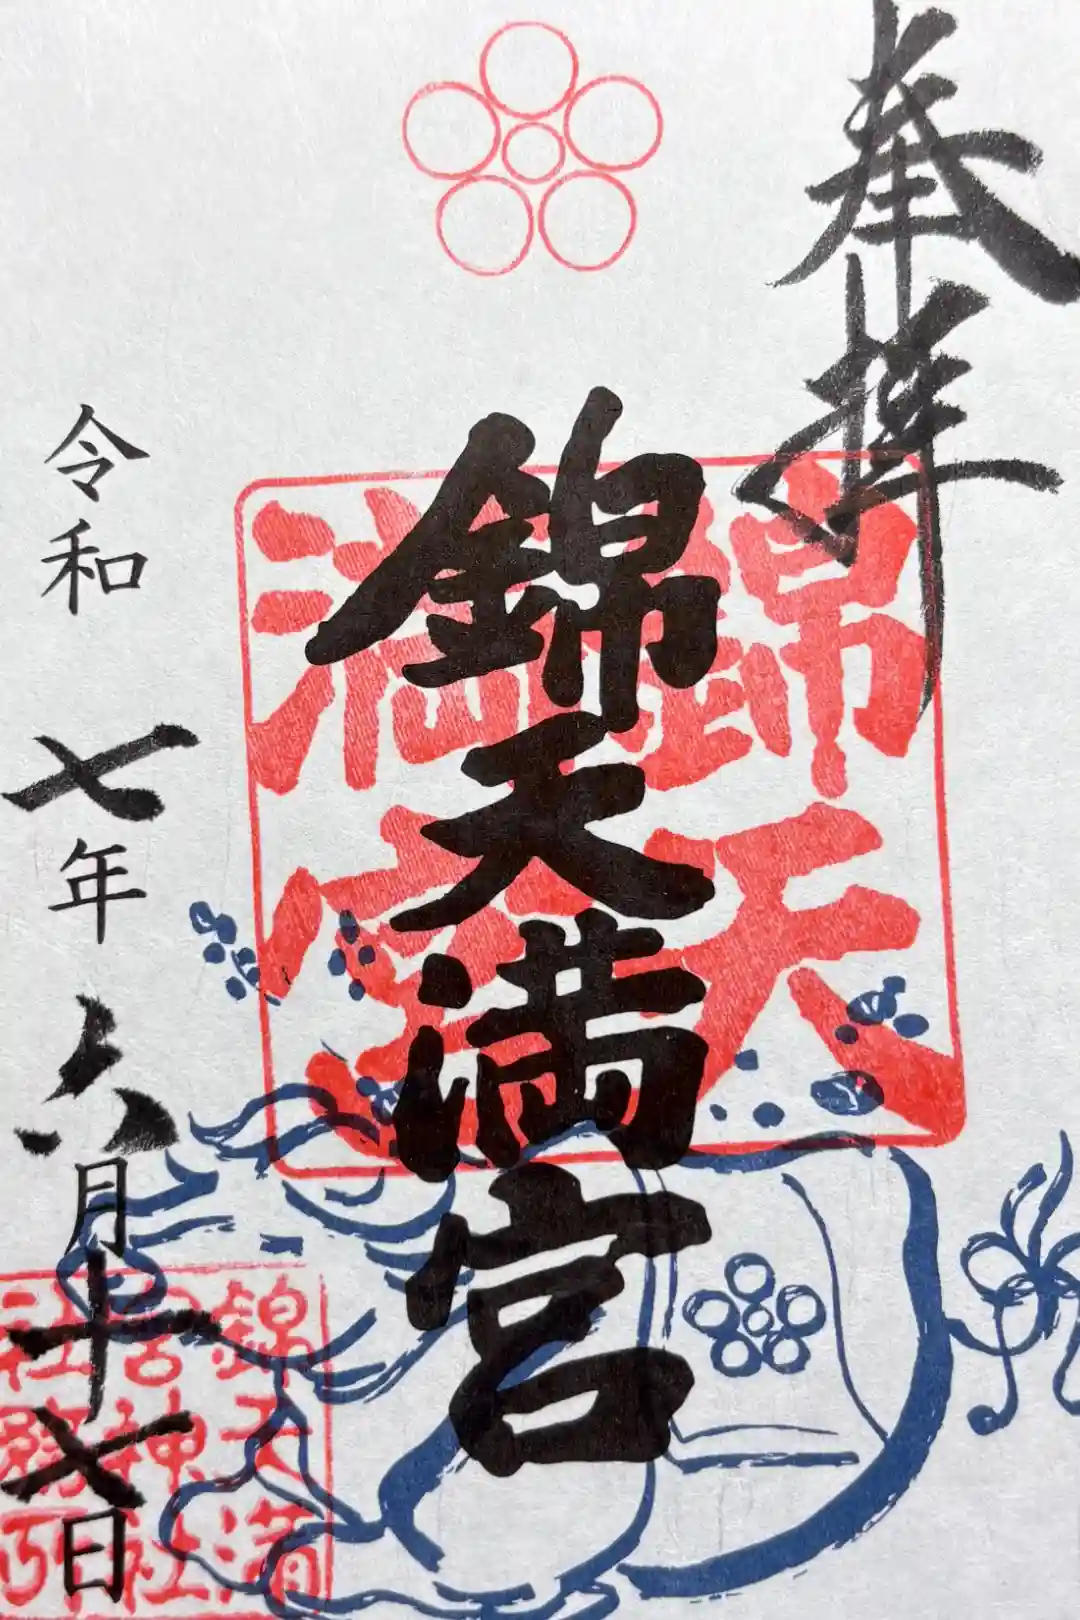 奉拝
錦天満宮
錦天
満宮
令和七年六月十七日
錦天満
宮神社
社務所